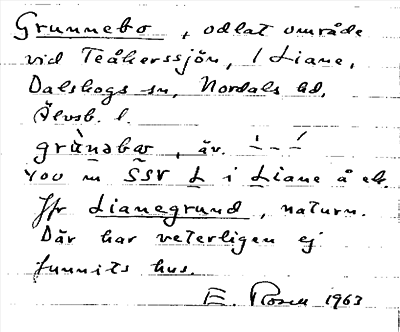 Grunnebo, odlat område
vid Teåkerssjön, i Liane,
Dalskogs sn, Nordals hd,
Älvsb. l.
grùnəbω, äv.
400 m SSV L i Liane å ek.
Jfr Lianegrund, naturn.
Där har veterligen ej
funnits hus.
E. Rosen 1963